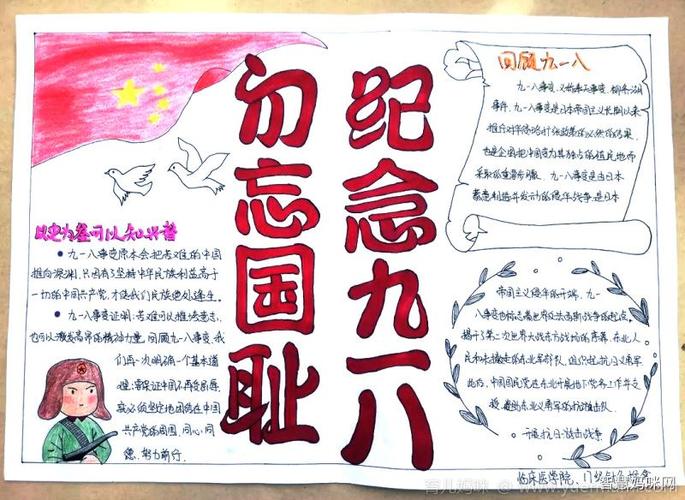 纪念九一八
勿忘国耻
回顾九一八
九一八事变，又称奉天事变、柳条湖
事件。九一八事变是日本帝国主义长期以来
推行对华侵略扩张政策的必然结果，
也是企图把中国变为其独占的殖民地而
采取的重要步骤。九一八事变是由日本
蓄意制造并发动的侵华战争，是日本
帝国主义侵华的开端。九一
八事变也标志着世界反法西斯战争的起点，
揭开了第二次世界大战东方战场的序幕。东北人
此后，中国共产党
东北义勇军
开展抗日游击战争
以史为鉴可以知兴替
九一八事变原本会把苦难的中国
推向深渊，只因有了坚持中华民族利益高于
一切的中国共产党，才使我们民族绝处逢生。
九一八事变证明：苦难可以摧
也可以激发高昂的精神力量。回顾九一八事变，我
们再一次明确一个基本道
理：要保证中国不再受屈辱，
就必须坚定地团结在中国
共产党的周围，同心同
德，努力前行。
临床医学院
育儿妈咪
智慧妈咪网